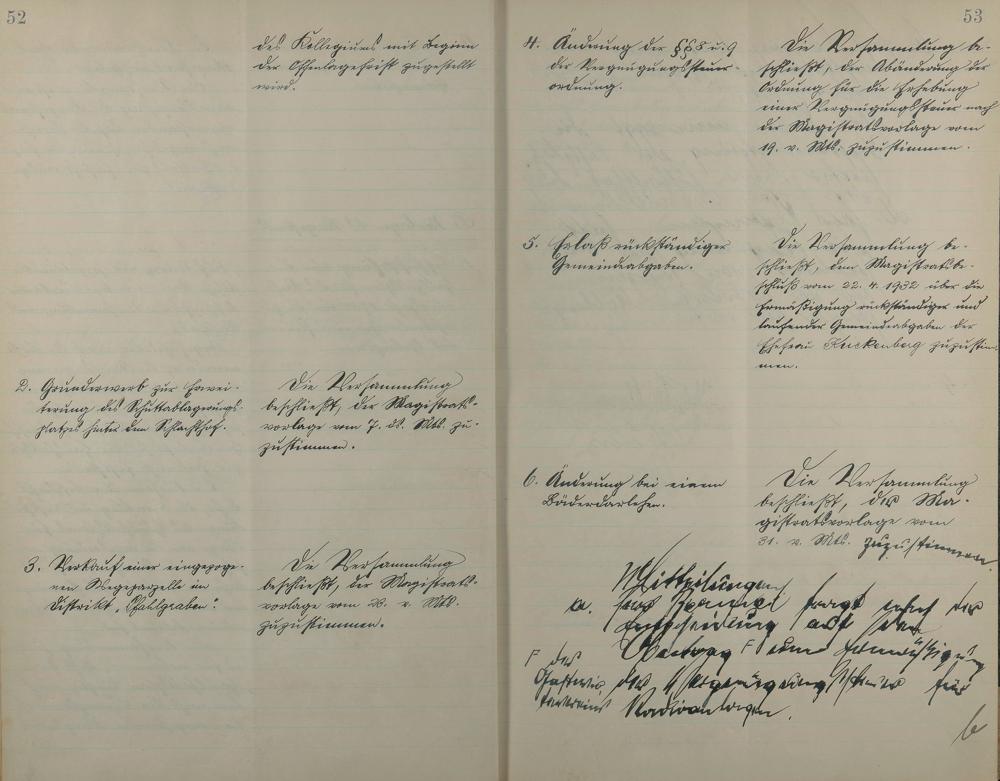 52
des Kollegiums mit Beginn
der Offenlagefrist zugestellt
wird.
2. Grunderwerb zur Erwei-
terung des Schuttablagerungs-
platzes hinter dem Schlachthof.
Die Versammlung
beschließt, der Magistrats-
vorlage vom 7. ds. Mts. zu-
zustimmen.
3. Verkauf einer eingezoge-
nen Wegeparzelle im
Distrikt „Pfahlgraben".
Die Versammlung
beschließt, der Magistrats-
vorlage vom 28. v. Mts.
zuzustimmen.
53
4. Änderung der §§ 8 u. 9
der Vergnügungssteuer-
ordnung.
Die Versammlung be-
schließt, der Abänderung der
Ordnung für die Erhebung
einer Vergnügungssteuer nach
der Magistratsvorlage vom
19. v. Mts. zuzustimmen.
5. Erlaß rückständiger
Gemeindeabgaben.
Die Versammlung be-
schließt, dem Magistratsbe-
schluß vom 22. 4. 1932 über die
Ermäßigung rückständiger und
laufender Gemeindeabgaben der
Ehefrau Kuckenberg zuzustim-
men.
6. Änderung bei einem
Bäderdarlehen.
Die Versammlung
beschließt, der Ma-
gistratsvorlage vom
31. v. Mts. zuzustimmen
Mitteilungen
a. Herr fragt nach der
Entscheidung auf den
Antrag F um Ermäßigung
F der
Gastwir-
tevereins
der Vergnügungssteuer für
Radioanlagen.